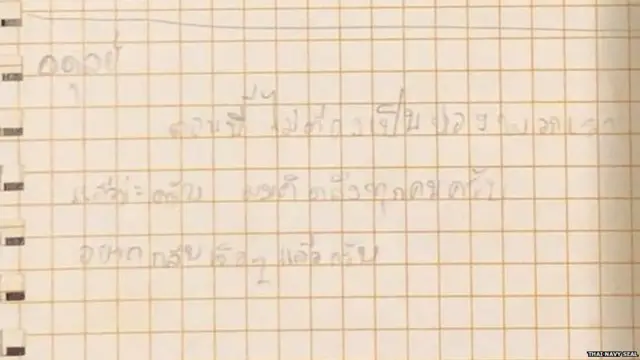 อดุลย์
ตอนนี้ ไม่ต้องเป็นห่วงพวกเรา
แล้วนะครับ ผมคิดถึงทุกคนครับ
อยากกลับเร็วๆ แล้วครับ
THAI NAVY SEAL